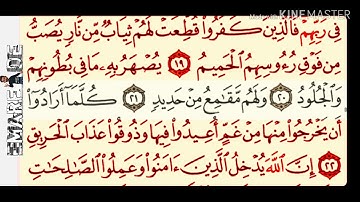 Made with KINEMASTER
EMAREEADE
فِي رَبِّهِمْ فَالَّذِينَ كَفَرُوا۟ قُطِّعَتْ لَهُمْ ثِيَابٌ مِّن نَّارٍ يُصَبُّ
مِن فَوْقِ رُءُوسِهِمُ الْحَمِيمُ ١٩ يُصْهَرُ بِهِۦ مَا فِي بُطُونِهِمْ
وَالْجُلُودُ ٢٠ وَلَهُم مَّقَامِعُ مِنْ حَدِيدٍ ٢١ كُلَّمَا أَرَادُوٓا۟
أَن يَخْرُجُوا۟ مِنْهَا مِنْ غَمٍّ أُعِيدُوا۟ فِيهَا وَذُوقُوا۟ عَذَابَ الْحَرِيقِ
٢٢ إِنَّ اللَّهَ يُدْخِلُ الَّذِينَ ءَامَنُوا۟ وَعَمِلُوا۟ الصَّالِحَاتِ